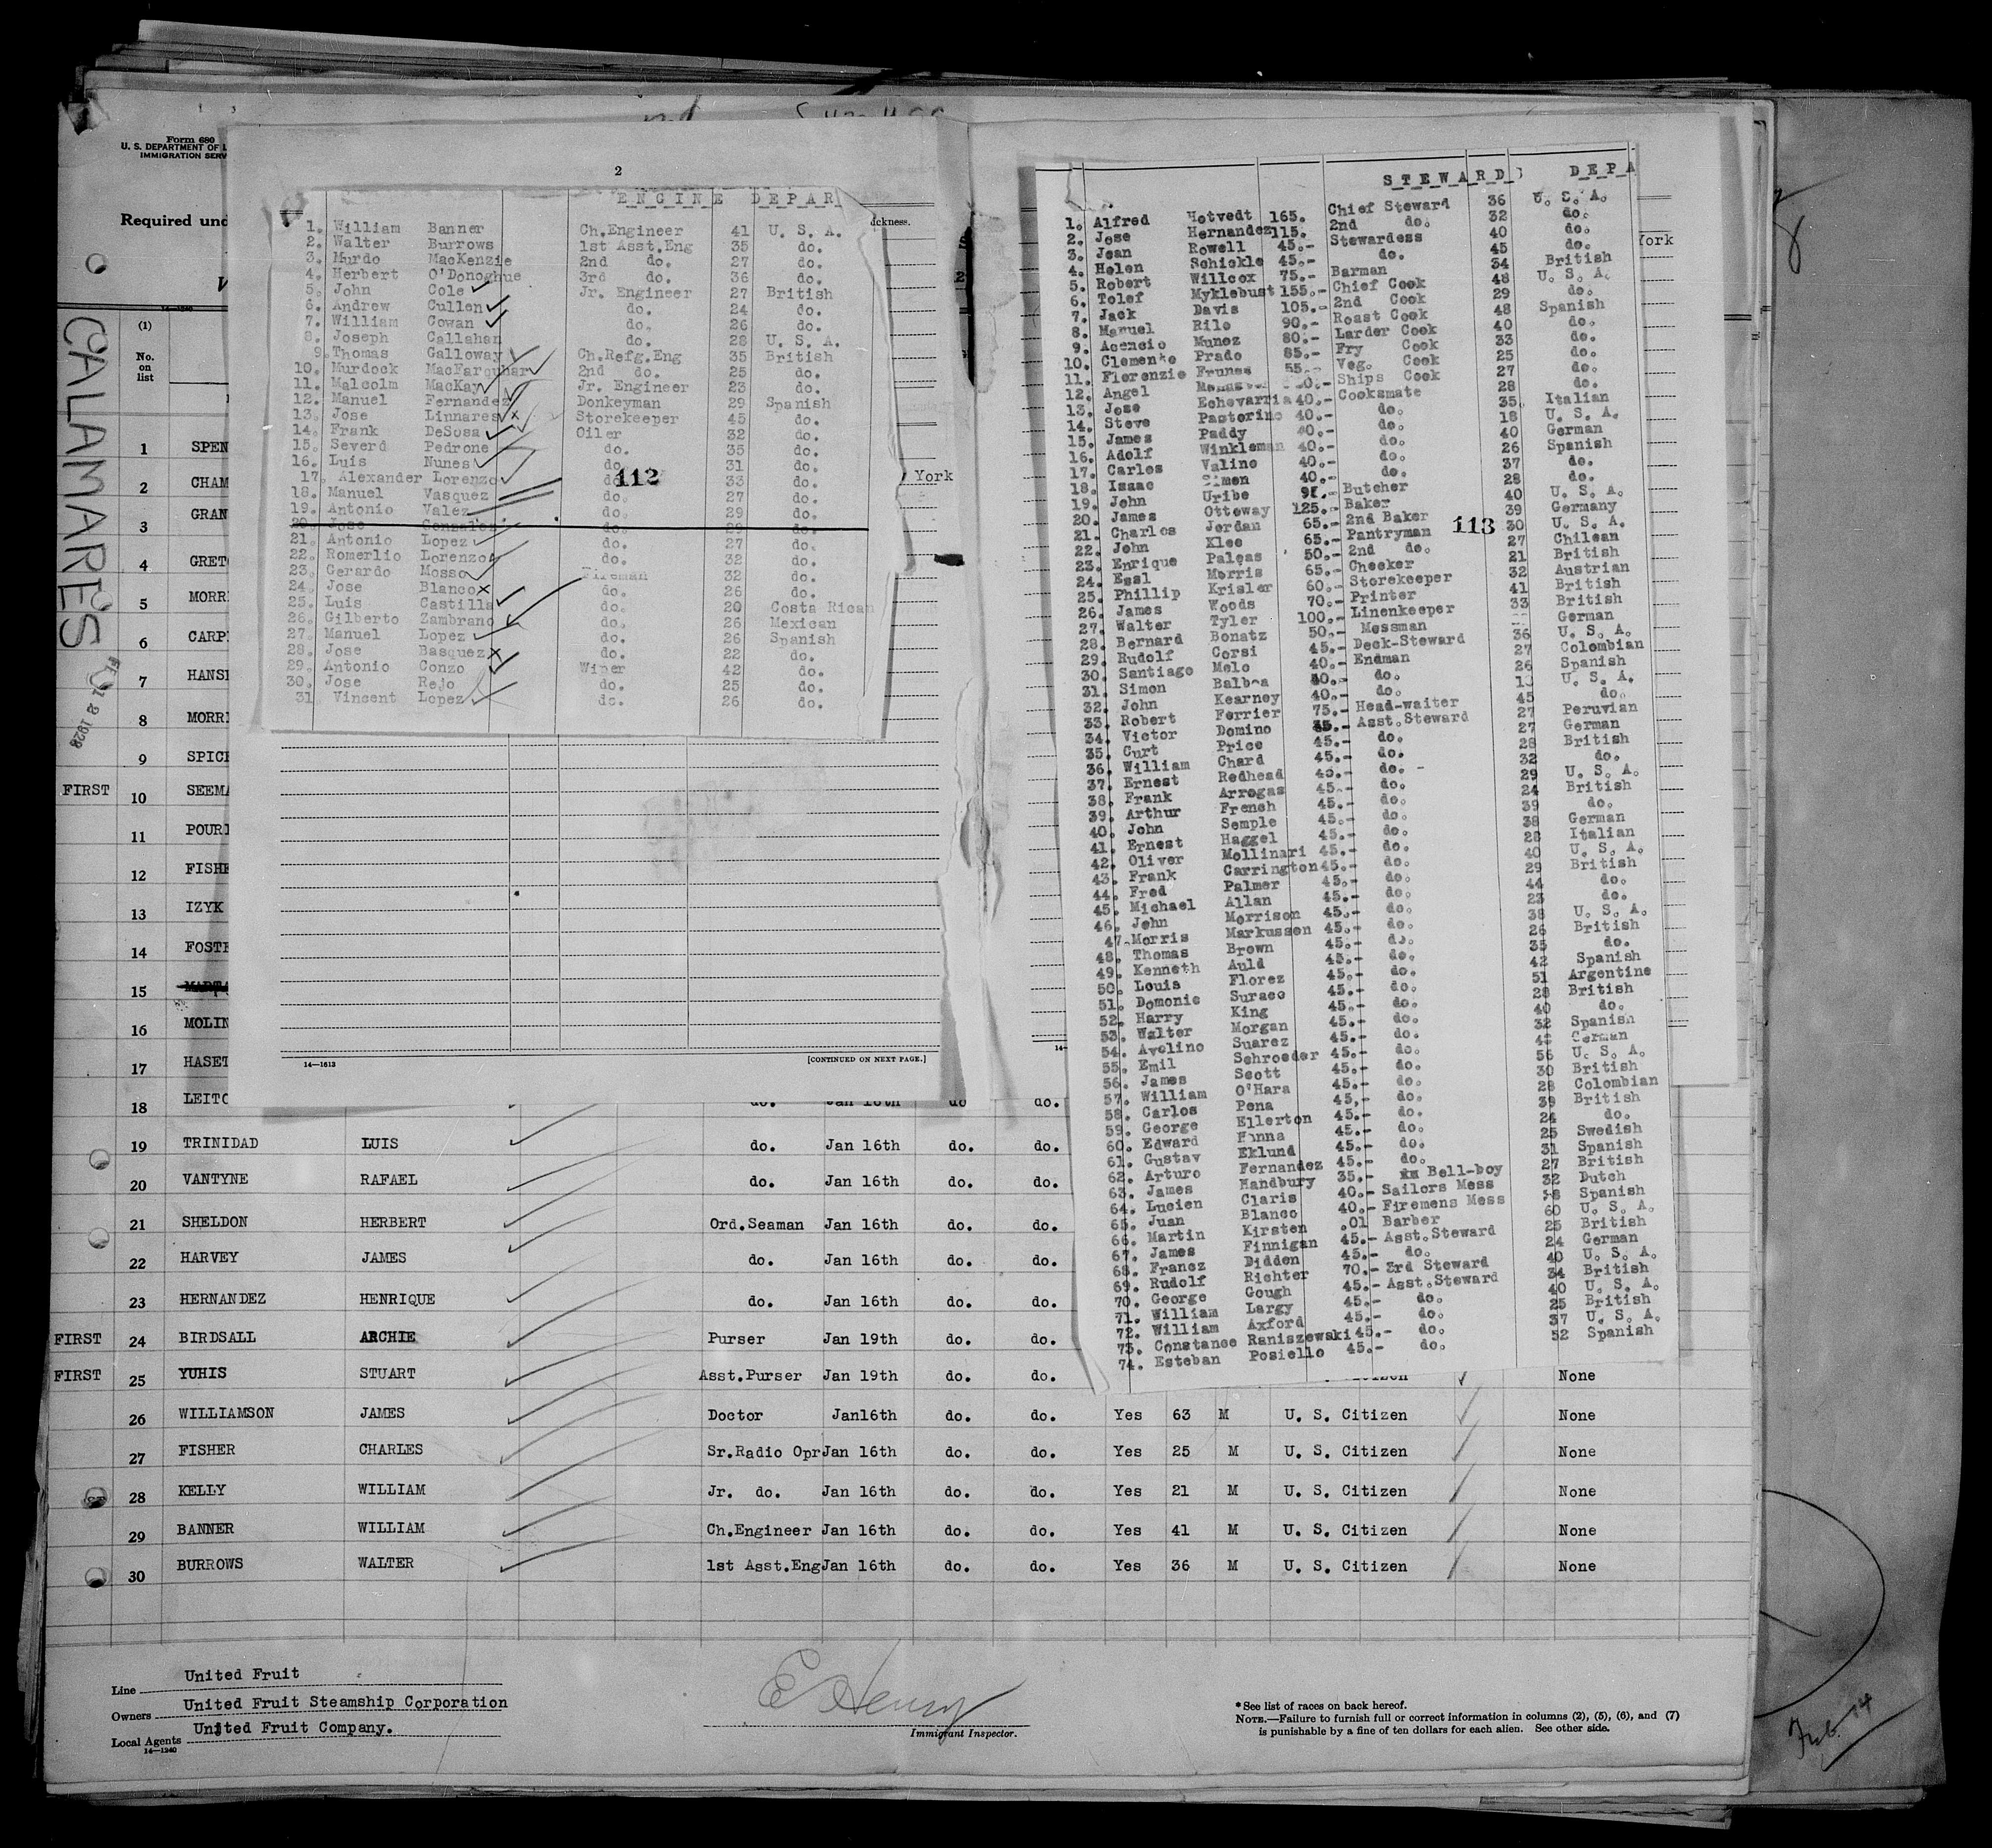 Form 680
U. S. DEPARTMENT OF L
IMMIGRATION SERV
Required und
CALAMARES
(1)
No.
on
list
1 SPEN
2 CHAM
3 GRAN
4 GRET
5 MORR
6 CARP
7 HANS
8 MORR
9 SPIC
FIRST 10 SEEM
11 POUR
12 FISH
13 IZYK
14 FOST
15
16 MOLIN
17 HASET
18 LEITO
2
ENGINE DEPAR
1. William Banner Ch.Engineer 41 U. S. A.
2. Walter Burrows 1st Asst.Eng 35 do.
3. Murdo MacKenzie 2nd do. 27 do.
4. Herbert O'Donoghue 3rd do. 36 do.
5. John Cole Jr. Engineer 27 British
6. Andrew Cullen do. 24 do.
7. William Cowan do. 26 do.
8. Joseph Callahan do. 28 U. S. A.
9. Thomas Galloway Ch.Refg.Eng 35 British
10. Murdock MacFarquhar 2nd do. 25 do.
11. Malcolm MacKay Jr. Engineer 23 do.
12. Manuel Fernandez Donkeyman 29 Spanish
13. Jose Linnares Storekeeper 45 do.
14. Frank DeSosa Oiler 32 do.
15. Severd Pedrone do. 35 do.
16. Luis Nunes do. 31 do.
17. Alexander Lorenzo do. 33 do.
112
18. Manuel Vasquez do. 27 do.
19. Antonio Valez do. 29 do.
20. Jose Gonzalez do. 29 do.
21. Antonio Lopez do. 27 do.
22. Romerlio Lorenzo do. 32 do.
23. Gerardo Mosso Fireman 32 do.
24. Jose Blanco do. 26 do.
25. Luis Castilla do. 20 Costa Rican
26. Gilberto Zambrano do. 26 Mexican
27. Manuel Lopez do. 26 Spanish
28. Jose Basquez do. 22 do.
29. Antonio Conzo Wiper 42 do.
30. Jose Rejo do. 25 do.
31 Vincent Lopez do. 26 do.
14—1613 [CONTINUED ON NEXT PAGE.]
ckness.
York
York
STEWARDS DEPA
1. Alfred Hotvedt 165. Chief Steward 36 U. S. A.
2. Jose Hernandez 115. 2nd do. 32 do.
3. Jean Rowell 45.- Stewardess 40 do.
4. Helen Schickle 45.- do. 45 do.
5. Robert Willcox 75.- Barman 34 British
6. Tolef Myklebust 155.- Chief Cook 48 U. S. A.
7. Jack Davis 105.- 2nd Cook 29 do.
8. Manuel Rilo 90.- Roast Cook 48 Spanish
9. Acencio Munoz 80.- Larder Cook 40 do.
10. Clemente Prado 85.- Fry Cook 33 do.
11. Florenzio Frunes 55.- Veg. Cook 25 do.
12. Angel Ships Cook 27 do.
13. Jose Echevarria 40.- Cooksmate 28 do.
14. Steve Pastorino 40.- do. 35 Italian
15. James Paddy 40.- do. 18 U. S. A.
16. Adolf Winkleman 40.- do. 40 German
17. Carlos Valino 40.- do. 26 Spanish
18. Isaac Simon 40.- do. 37 do.
19. John Uribe Butcher 28 do.
20. James Otteway 125.- Baker 40 U. S. A.
21. Charles Jordan 65.- 2nd Baker 39 Germany
22. John Klee 65.- Pantryman 30 U. S. A.
113
23. Enrique Paleas 50.- 2nd do. 27 Chilean
24. Essl Morris 65.- Checker 21 British
25. Phillip Krisler 60.- Storekeeper 32 Austrian
26. James Woods 70.- Printer 41 British
27. Walter Tyler 100.- Linenkeeper 33 British
28. Bernard Bonatz 50.- Messman German
29. Rudolf Corsi 45.- Deck-Steward 36 U. S. A.
30. Santiago Melo 40.- Endman 27 Colombian
31. Simon Balboa 40.- do. 26 Spanish
32. John Kearney 40.- do. U. S. A.
33. Robert Ferrier 75.- Head-waiter 45 do.
34. Victor Domino 45.- Asst.Steward 27 Peruvian
35. Curt Price 45.- do. 27 German
36. William Chard 45.- do. 28 British
37. Ernest Redhead 45.- do. 32 do.
38. Frank Arrogas 45.- do. 29 U. S. A.
39. Arthur French 45.- do. 24 British
40. John Semple 45.- do. 39 do.
41. Ernest Haggel 45.- do. 38 German
42. Oliver Mollinari 45.- do. 28 Italian
43. Frank Carrington 45.- do. 40 U. S. A.
44. Fred Palmer 45.- do. 29 British
45. Michael Allan 45.- do. 44 do.
46. John Morrison 45.- do. 23 do.
47. Morris Markussen 45.- do. 38 U. S. A.
48. Thomas Brown 45.- do. 26 British
49. Kenneth Auld 45.- do. 35 do.
50. Louis Florez 45.- do. 42 Spanish
51. Domonic Suraco 45.- do. 51 Argentine
52. Harry King 45.- do. 28 British
53. Walter Morgan 45.- do. 40 do.
54. Avelino Suarez 45.- do. 32 Spanish
55. Emil Schroeder 45.- do. German
56. James Scott 45.- do. 56 U. S. A.
57. William O'Hara 45.- do. 30 British
58. Carlos Pena 45.- do. 28 Colombian
59. George Ellerton 45.- do. 39 British
60. Edward Hanna 45.- do. 24 do.
61. Gustav Eklund 45.- do. 25 Swedish
62. Arturo Fernandez 45.- do. 31 Spanish
63. James Handbury 35.- Bell-boy 27 British
64. Lucien Claris 40.- Sailors Mess 32 Dutch
65. Juan Blanco 40.- Firemens Mess 38 Spanish
66. Martin Kirsten .01 Barber 60 U. S. A.
67. James Finnigan 45.- Asst.Steward 25 British
68. Francz Didden 45.- do. 24 German
69. Rudolf Richter 70.- 3rd Steward 40 U. S. A.
70. George Gough 45.- Asst.Steward 34 British
71. William Largy 45.- do. 40 U. S. A.
72. William Axford 45.- do. 25 British
73. Constance Raniszewski 45.- do. 37 U. S. A.
74. Esteban Posiello 45.- do. 52 Spanish
19 TRINIDAD LUIS do. Jan 16th do. do.
20 VANTYNE RAFAEL do. Jan 16th do. do.
21 SHELDON HERBERT Ord.Seaman Jan 16th do. do.
22 HARVEY JAMES do. Jan 16th do. do.
23 HERNANDEZ HENRIQUE do. Jan 16th do. do.
FIRST 24 BIRDSALL ARCHIE Purser Jan 19th do. do.
FIRST 25 YUHIS STUART Asst.Purser Jan 19th do. do. None
26 WILLIAMSON JAMES Doctor Jan16th do. do. Yes 63 M U. S. Citizen None
27 FISHER CHARLES Sr.Radio Opr Jan 16th do. do. Yes 25 M U. S. Citizen None
28 KELLY WILLIAM Jr. do. Jan 16th do. do. Yes 21 M U. S. Citizen None
29 BANNER WILLIAM Ch.Engineer Jan 16th do. do. Yes 41 M U. S. Citizen None
30 BURROWS WALTER 1st Asst.Eng Jan 16th do. do. Yes 36 M U. S. Citizen None
Line United Fruit
Owners United Fruit Steamship Corporation
Local Agents United Fruit Company.
14—1240
E Henry
Immigrant Inspector.
*See list of races on back hereof.
NOTE.—Failure to furnish full or correct information in columns (2), (5), (6), and (7)
is punishable by a fine of ten dollars for each alien. See other side.
Feb. 14